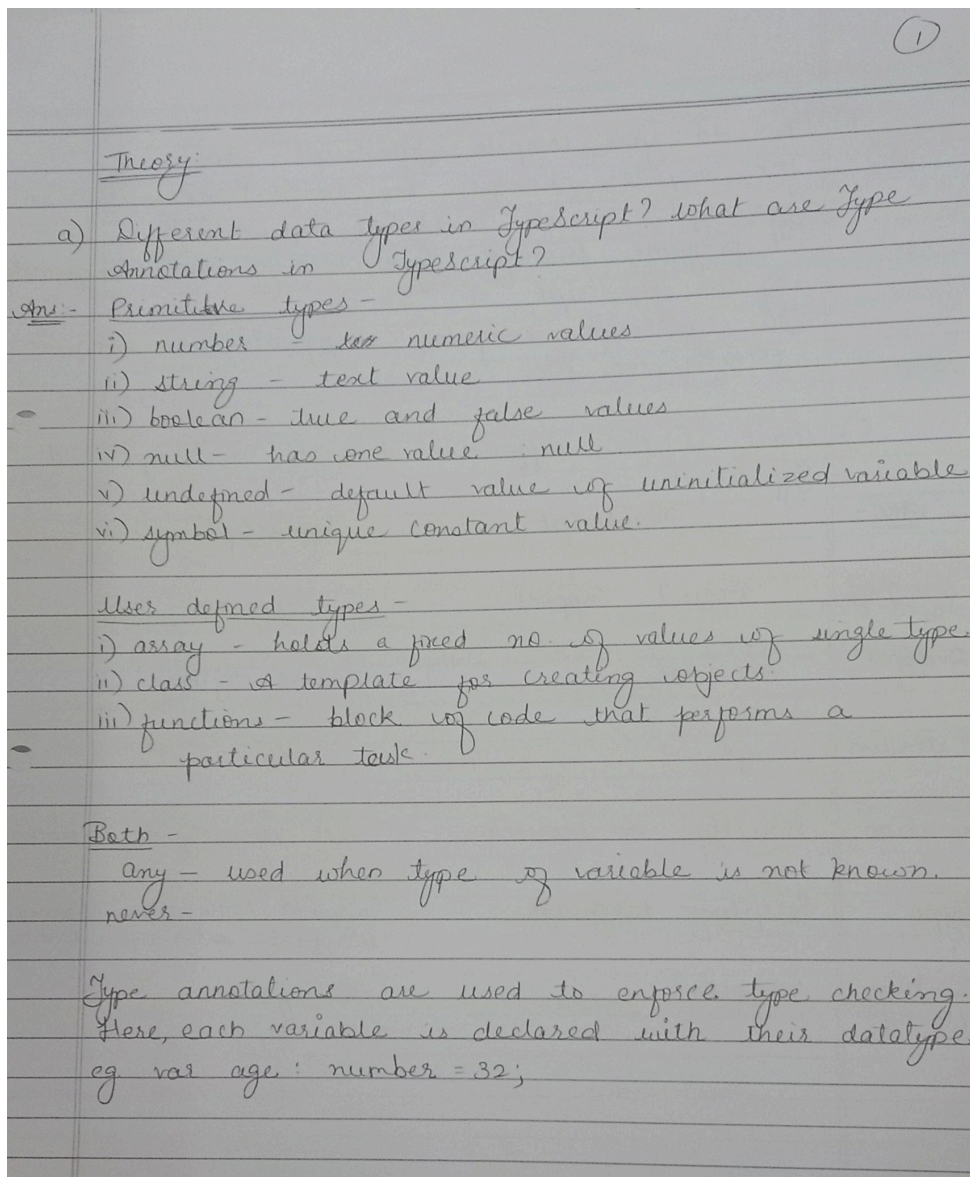 1
Theory:
a) Different data types in TypeScript? What are Type
Annotations in Typescript?
Ans:- Primitive types -
i) number - numeric values
ii) string - text value
iii) boolean - true and false values
iv) null - has one value : null
v) undefined - default value of uninitialized variable
vi) symbol - unique constant value.
User defined types -
i) array - holds a fixed no. of values of single type.
ii) class - A template for creating objects.
iii) functions - block of code that performs a
particular task.
Both -
any - used when type of variable is not known.
never -
Type annotations are used to enforce type checking.
Here, each variable is declared with their datatype
eg var age : number = 32;